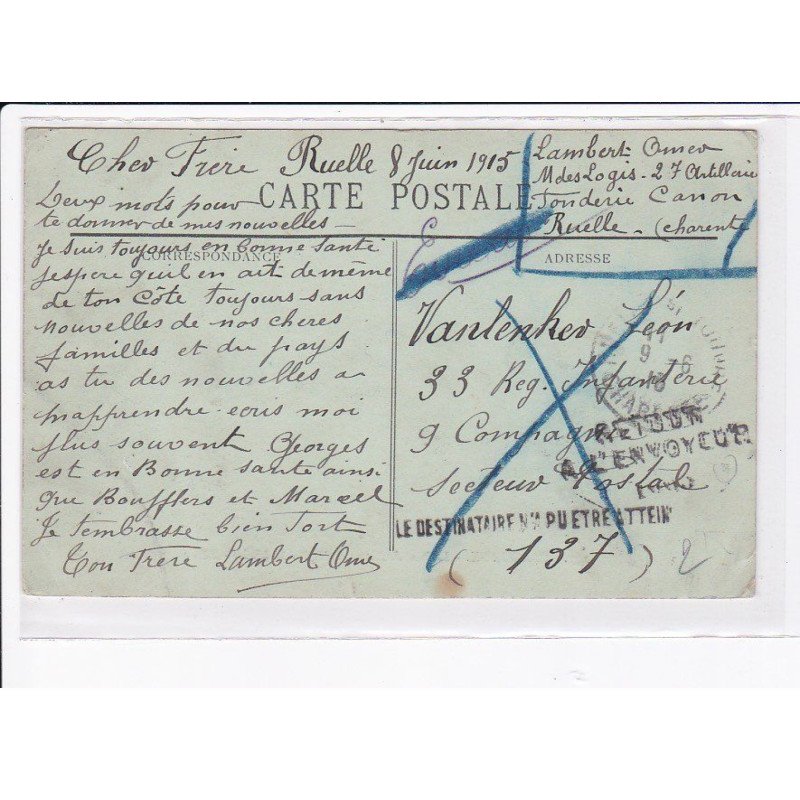 Cher Frere Ruelle 8 Juin 1915
Deux mots pour
te donner de mes nouvelles -
CARTE POSTALE
CORRESPONDANCE
Je suis toujours en bonne santé
j'espere qu'il en ait de même
de ton Côte toujours sans
nouvelles de nos cheres
familles et du pays
as tu des nouvelles a
m'apprendre ecris moi
plus souvent Georges
est en Bonne sante ainsi
que Boufflers et Marcel
Je t'embrasse bien fort
Ton Frere Lambert Omer
Lambert Omer
M des Logis - 27 Artillerie
Fonderie Canon
Ruelle - (charente
ADRESSE
Vanlenker Léon
33 Reg. Infanterie
9 Compagnie
secteur Postale
(137)
RETOUR
A L'ENVOYEUR
LE DESTINATAIRE N'A PU ETRE ATTEIN